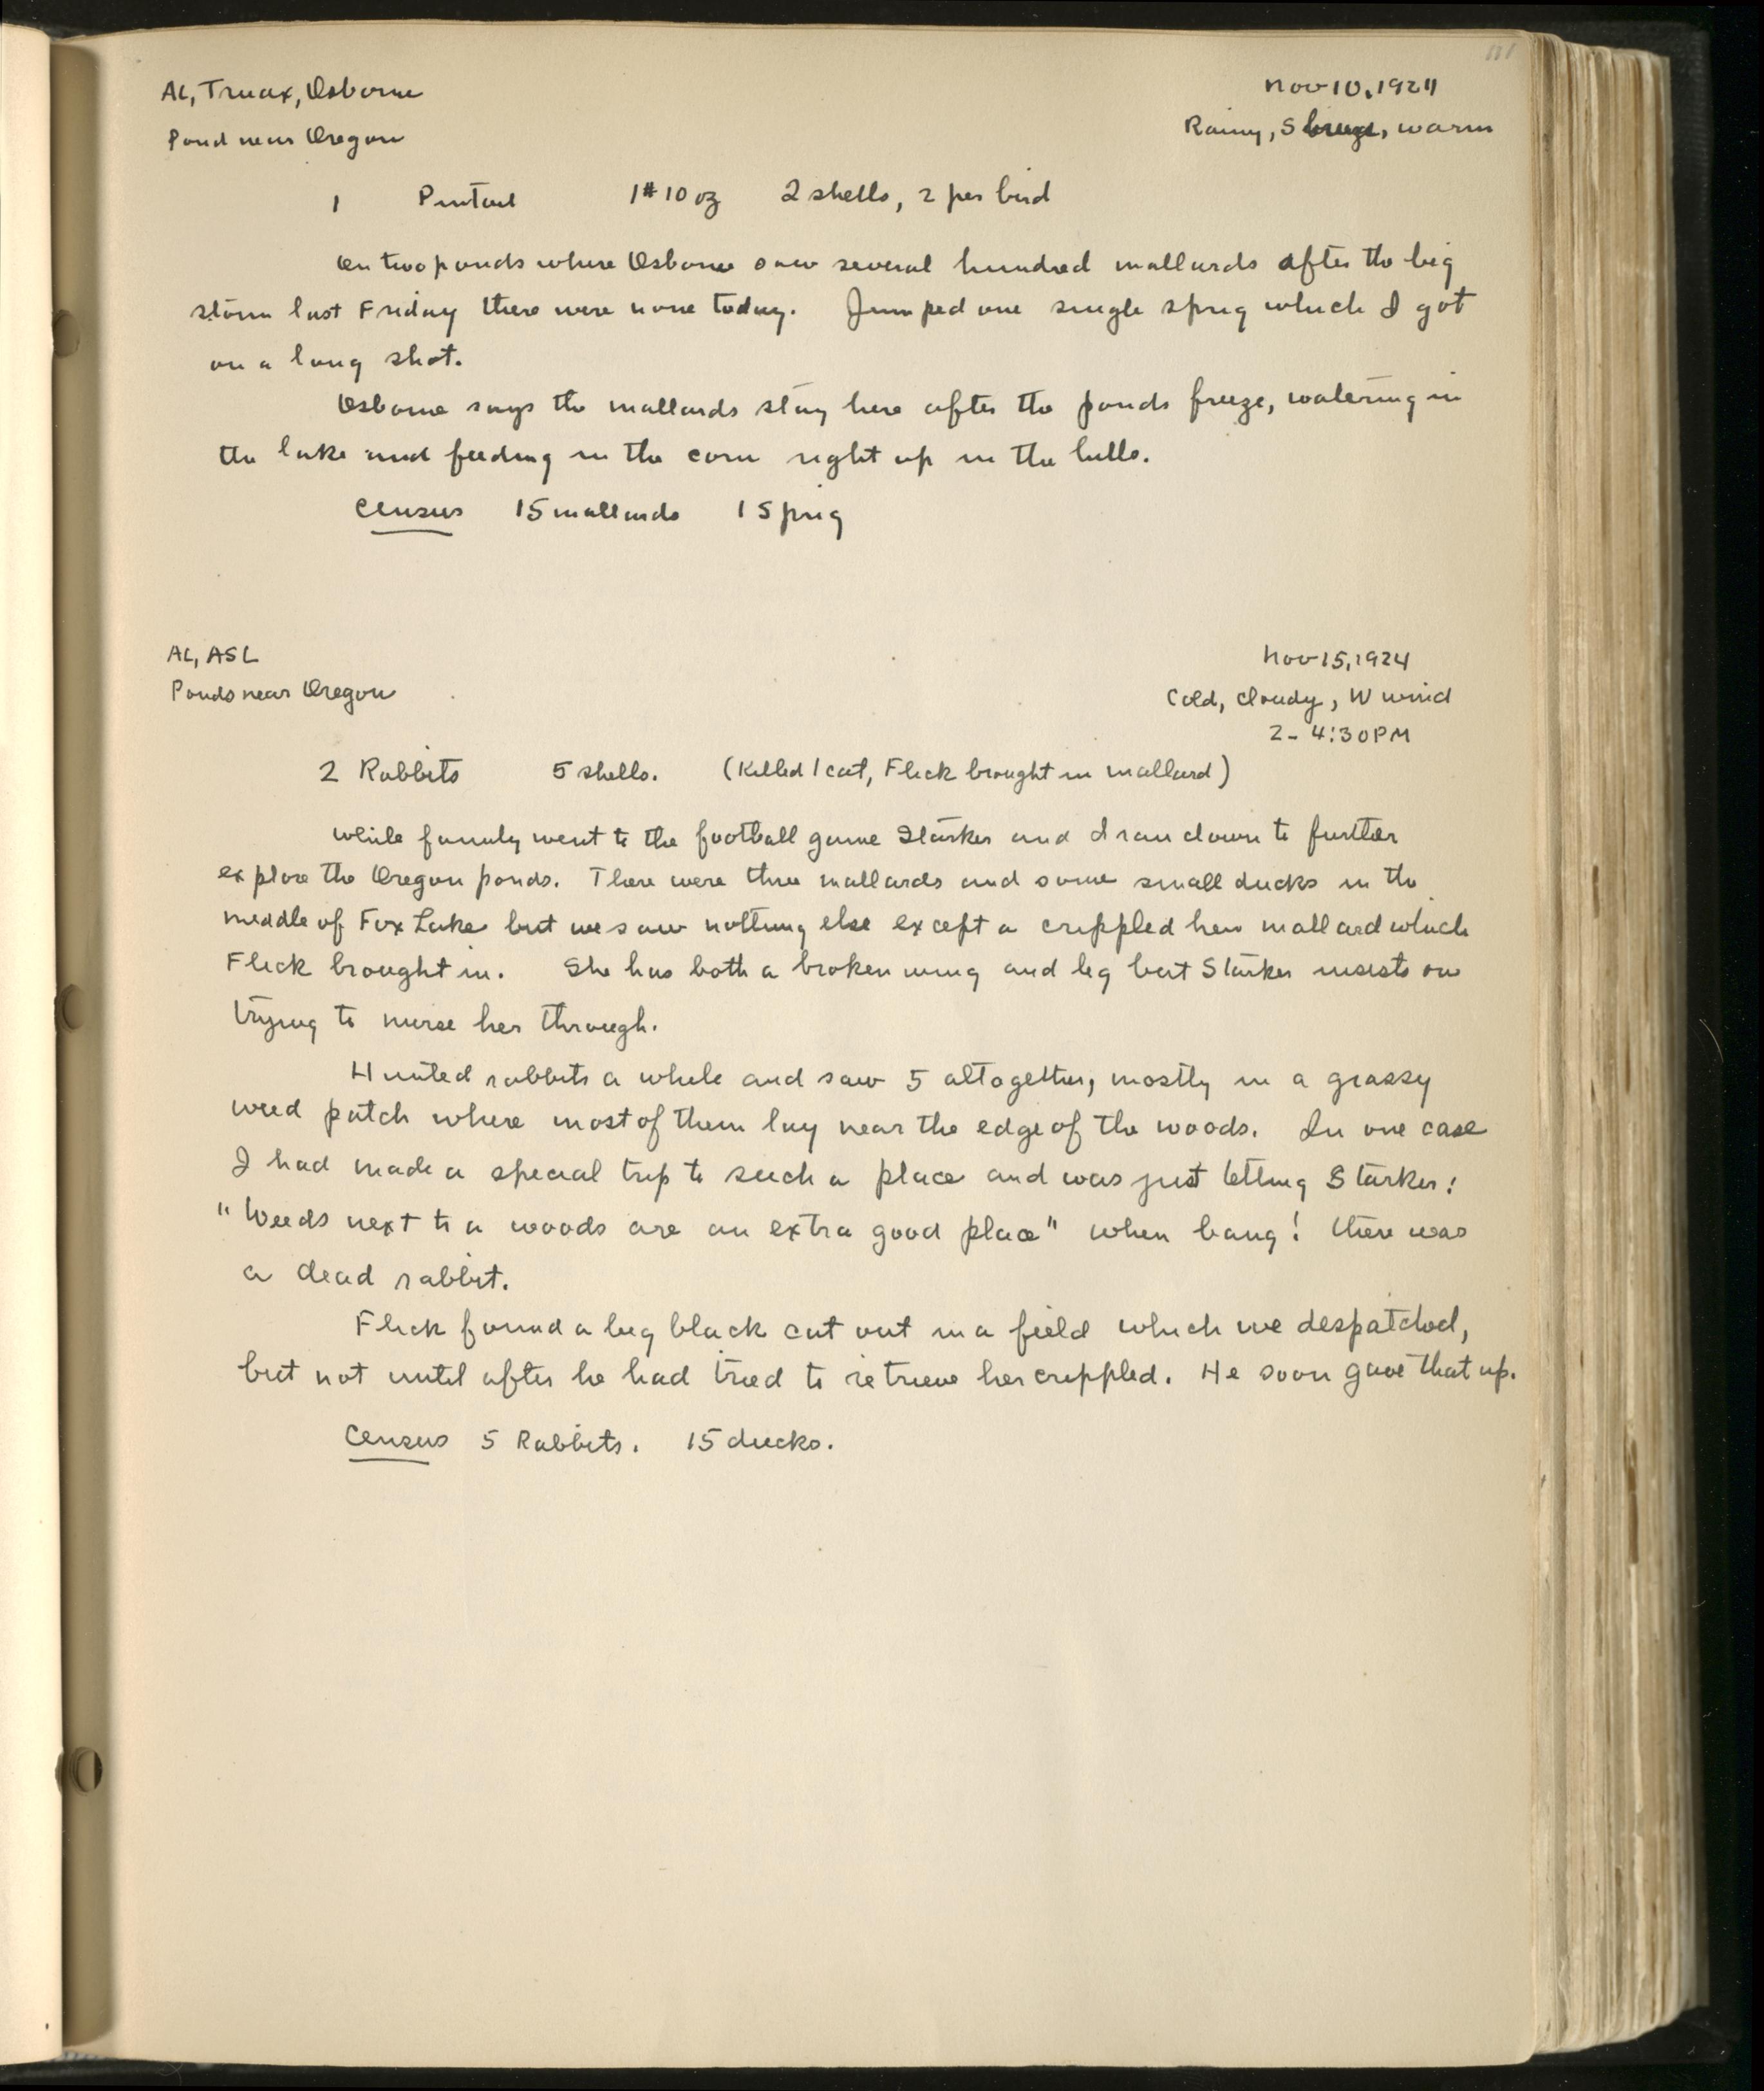 131
AL, Truax, Osborne
Nov 10, 1924
Pond near Oregon
Rainy, S breeze, warm
1 Pintail 1# 10 oz 2 shells, 2 per bird
On two ponds where Osborne saw several hundred mallards after the big
storm last Friday there were none today. Jumped one single sprig which I got
on a long shot.
Osborne says the mallards stay here after the ponds freeze, watering in
the lake and feeding in the corn right up in the hills.
Census 15 mallards 1 Sprig
AL, ASL
Nov 15, 1924
Ponds near Oregon
Cold, cloudy, W wind
2- 4:30 PM
2 Rabbits 5 shells. (Killed 1 cat, Flick brought in mallard)
While family went to the football game Starker and I ran down to further
explore the Oregon ponds. There were three mallards and some small ducks in the
middle of Fox Lake but we saw nothing else except a crippled hen mallard which
Flick brought in. She has both a broken wing and leg but Starker insists on
trying to nurse her through.
Hunted rabbits a while and saw 5 altogether, mostly in a grassy
weed patch where most of them lay near the edge of the woods. In one case
I had made a special trip to such a place and was just telling Starker:
"Weeds next to a woods are an extra good place" when bang! there was
a dead rabbit.
Flick found a big black cat out in a field which we despatched,
but not until after he had tried to retrieve her crippled. He soon gave that up.
Census 5 Rabbits. 15 ducks.